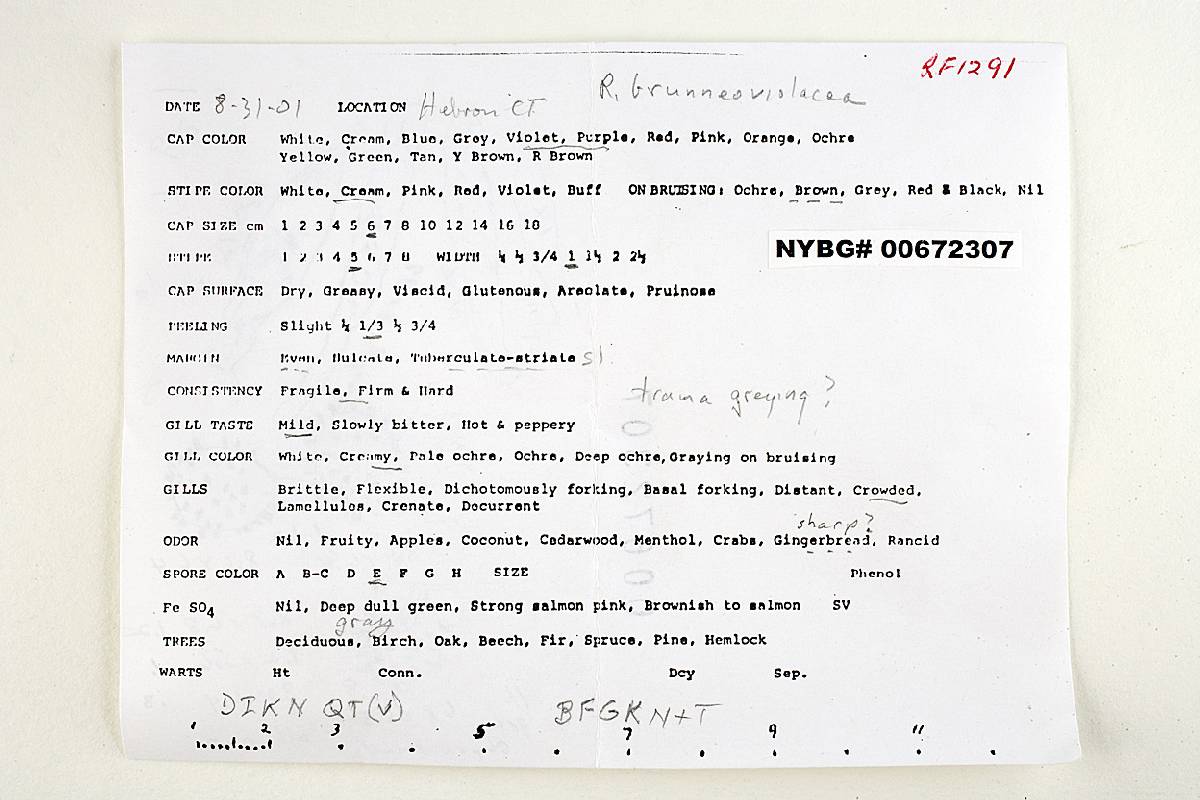 RF1291
R. brunneoviolacea
DATE 8-31-01 LOCATION Hebron CT
CAP COLOR White, Cream, Blue, Grey, Violet, Purple, Red, Pink, Orange, Ochre
Yellow, Green, Tan, Y Brown, R Brown
STIPE COLOR White, Cream, Pink, Red, Violet, Buff ON BRUISING: Ochre, Brown, Grey, Red & Black, Nil
CAP SIZE cm 1 2 3 4 5 6 7 8 10 12 14 16 18
STIPE 1 2 3 4 5 6 7 8 WIDTH ¼ ½ 3/4 1 1½ 2 2½
NYBG# 00672307
CAP SURFACE Dry, Greasy, Viscid, Glutenous, Areolate, Pruinose
PEELING Slight ¼ 1/3 ½ 3/4
MARGIN Even, Sulcate, Tuberculate-striate sl.
CONSISTENCY Fragile, Firm & Hard
trama greying?
GILL TASTE Mild, Slowly bitter, Hot & peppery
GILL COLOR White, Creamy, Pale ochre, Ochre, Deep ochre, Graying on bruising
GILLS Brittle, Flexible, Dichotomously forking, Basal forking, Distant, Crowded,
Lamellules, Crenate, Decurrent
sharp?
ODOR Nil, Fruity, Apples, Coconut, Cedarwood, Menthol, Crabs, Gingerbread, Rancid
SPORE COLOR A B-C D E F G H SIZE Phenol
Fe SO4 Nil, Deep dull green, Strong salmon pink, Brownish to salmon SV
grass
TREES Deciduous, Birch, Oak, Beech, Fir, Spruce, Pine, Hemlock
WARTS Ht Conn. Dcy Sep.
DIKN QT(V) BFGKN+T
1 2 3 5 7 9 11